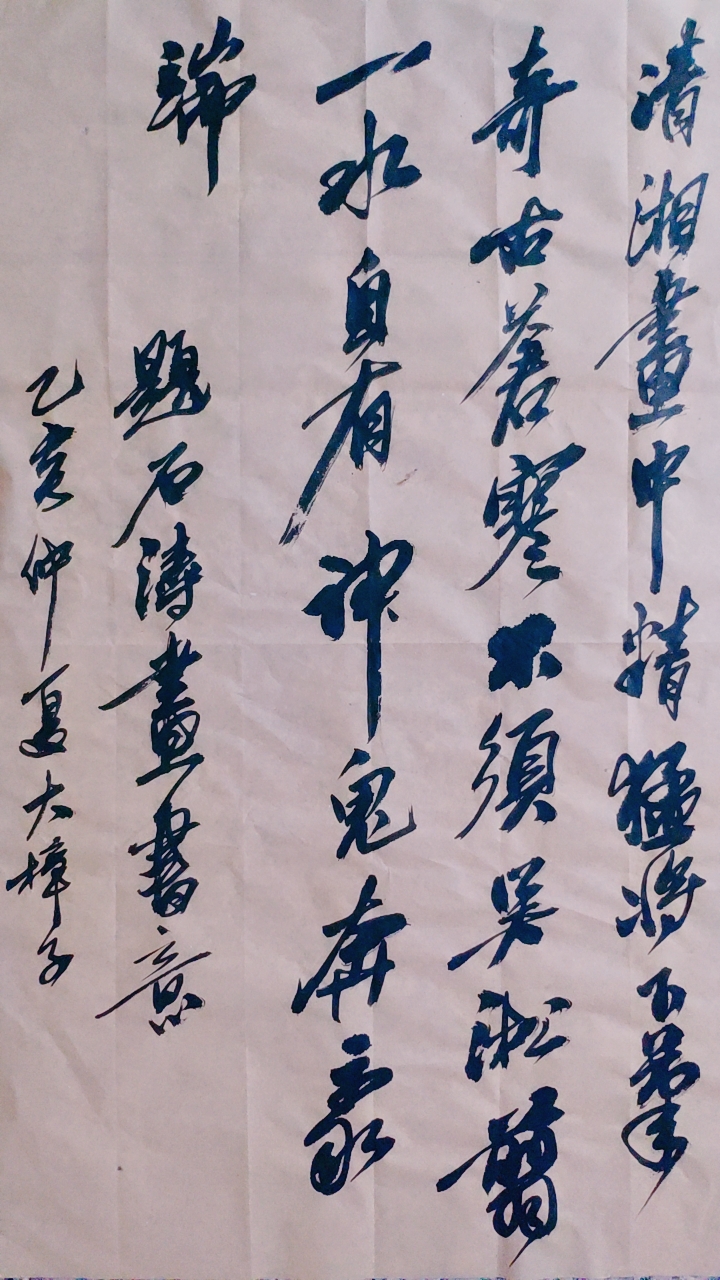 清湘畫中精猛將下筆
奇古蒼寒不須吳淞翦
一水自有神鬼奔豪
端
題石濤畫書意
乙亥仲夏大樟子